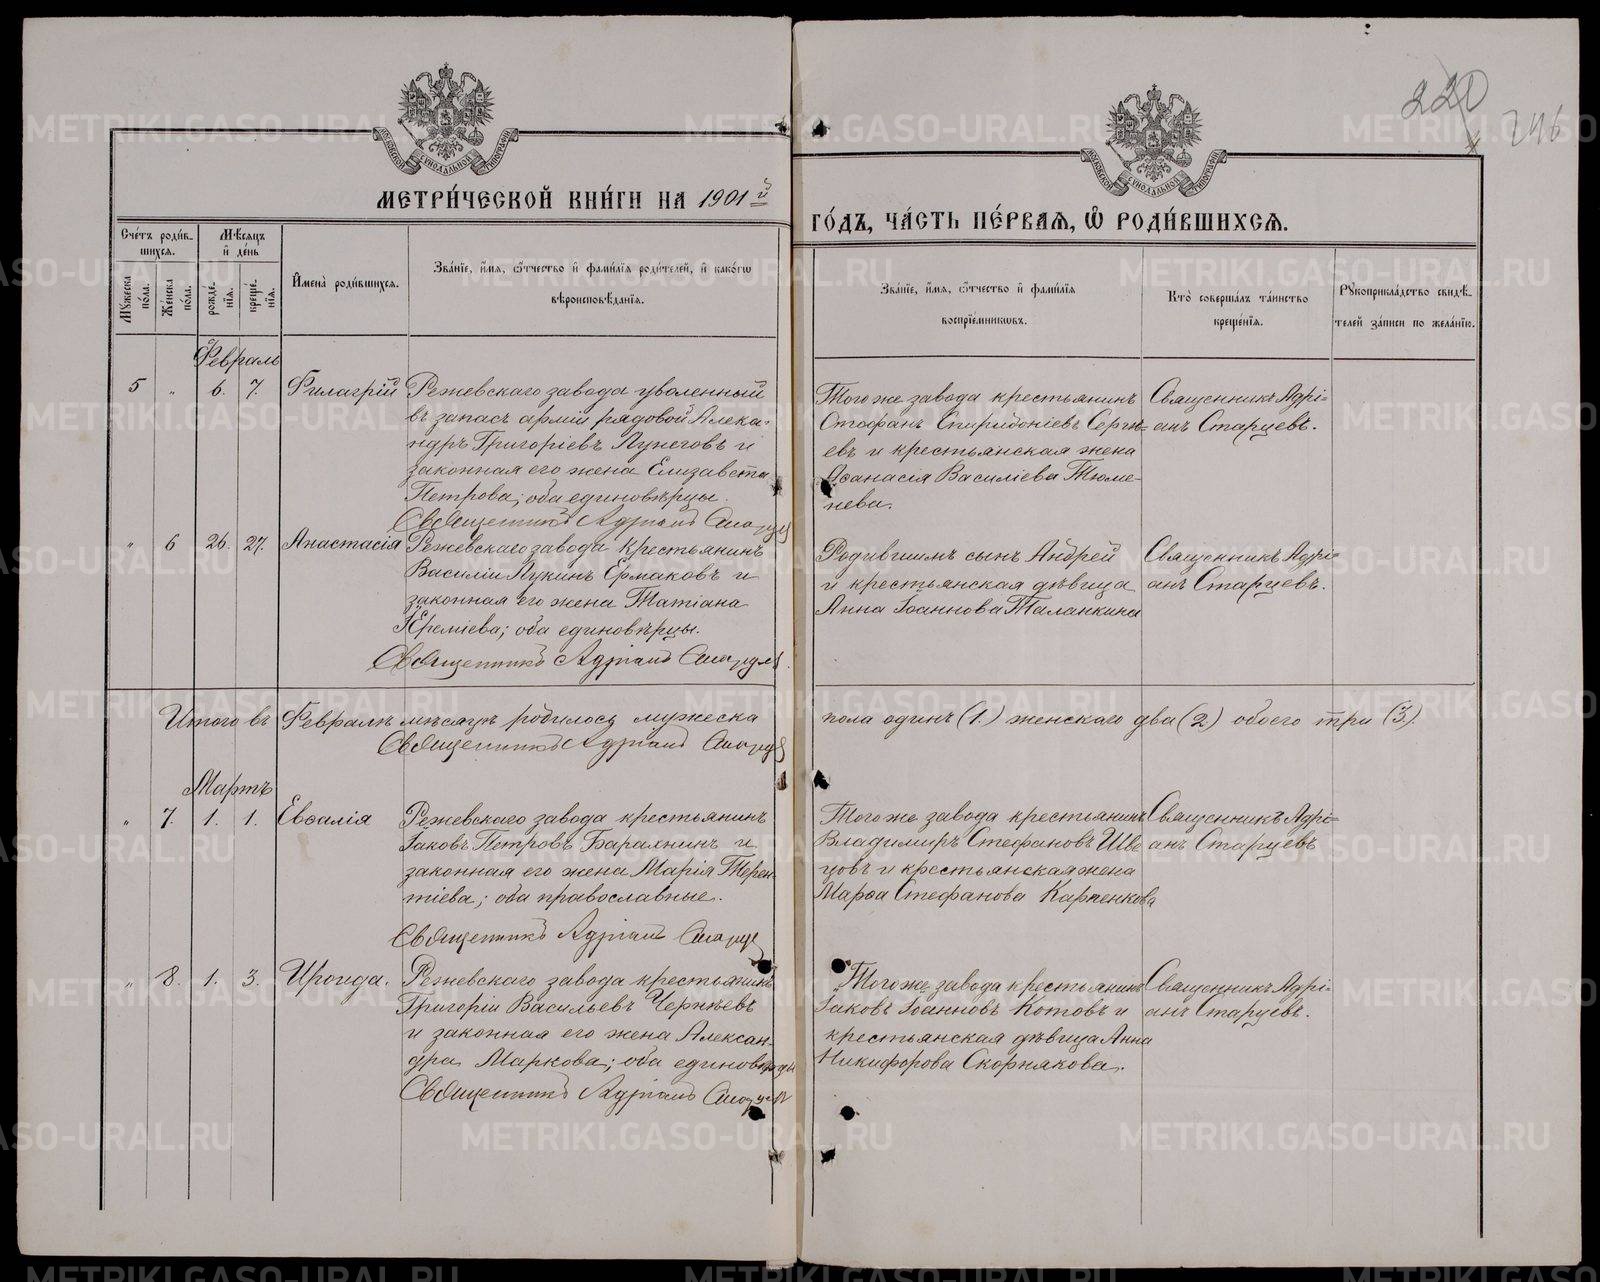 220
246
МЕТРИ́ЧЕСКОЙ КНИ́ГИ НА 1901й
ГО́ДЪ, ЧА́СТЬ ПЕ́РВАѦ, Ѽ РОДИ́ВШИХСѦ.
Сче́тъ роди́в-
шихся.
Мѣ́сяцъ
и де́нь
Мꙋжеска
по́ла.
Же́нска
по́ла.
рожде́-
нія.
креще́-
нія.
Имена̀ роди́вшихся.
Зва́ніе, и́мя, ѻ҆́тчество и фами́лія роди́телей, и како́гѡ
вѣроисповѣ́данія.
Зва́ніе, и́мя, ѻ҆́тчество и фами́лія
воспріе́мникѡвъ.
Кто̀ соверша́лъ та́инство
креще́нія.
Рꙋкоприкла́дство свидѣ́-
телей за́писи по жела́нію.
Февраль
5 " 6. 7. Филагрій
Режевскаго завода уволенный
въ запасъ арміи рядовой Алекса-
ндръ Григоріевъ Лунеговъ и
законная его жена Елизавета
Петрова; оба единовѣрцы.
Священникъ Адріанъ Старцевъ
Того же завода крестьянинъ
Стефанъ Спиридоніевъ Сергѣ-
евъ и крестьянская жена
Аѳанасія Василіева Тюме-
нева.
Священникъ Адрі-
анъ Старцевъ.
" 6 26. 27. Анастасія
Режевскаго завода крестьянинъ
Василій Лукинъ Ермаковъ и
законная его жена Татіана
Іереміева; оба единовѣрцы.
Священникъ Адріанъ Старцевъ
Родившимъ сынъ Андрей
и крестьянская дѣвица
Анна Іоаннова Таланкина
Священникъ Адрі-
анъ Старцевъ.
Итого въ Февралѣ мѣсяцѣ родилось мужеска
пола одинъ (1.) женскаго два (2) обоего три (3).
Священникъ Адріанъ Старцевъ
Мартъ
" 7. 1. 1. Евѳалія
Режевскаго завода крестьянинъ
Іаковъ Петровъ Барахнинъ и
законная его жена Марія Терен-
тіева; оба православные.
Священникъ Адріанъ Старцевъ
Того же завода крестьянинъ
Владимиръ Стефановъ Шве-
цовъ и крестьянская жена
Марѳа Стефанова Карпенкова
Священникъ Адрі-
анъ Старцевъ
" 8. 1. 3. Ироида.
Режевскаго завода крестьянинъ
Григорій Васильевъ Чернѣевъ
и законная его жена Алексан-
дра Маркова; оба единовѣрцы
Священникъ Адріанъ Старцевъ
Того же завода крестьянинъ
Іаковъ Іоанновъ Котовъ и
крестьянская дѣвица Анна
Никифорова Скорнякова.
Священникъ Адрі-
анъ Старцевъ.
METRIKI.GASO-URAL.RU